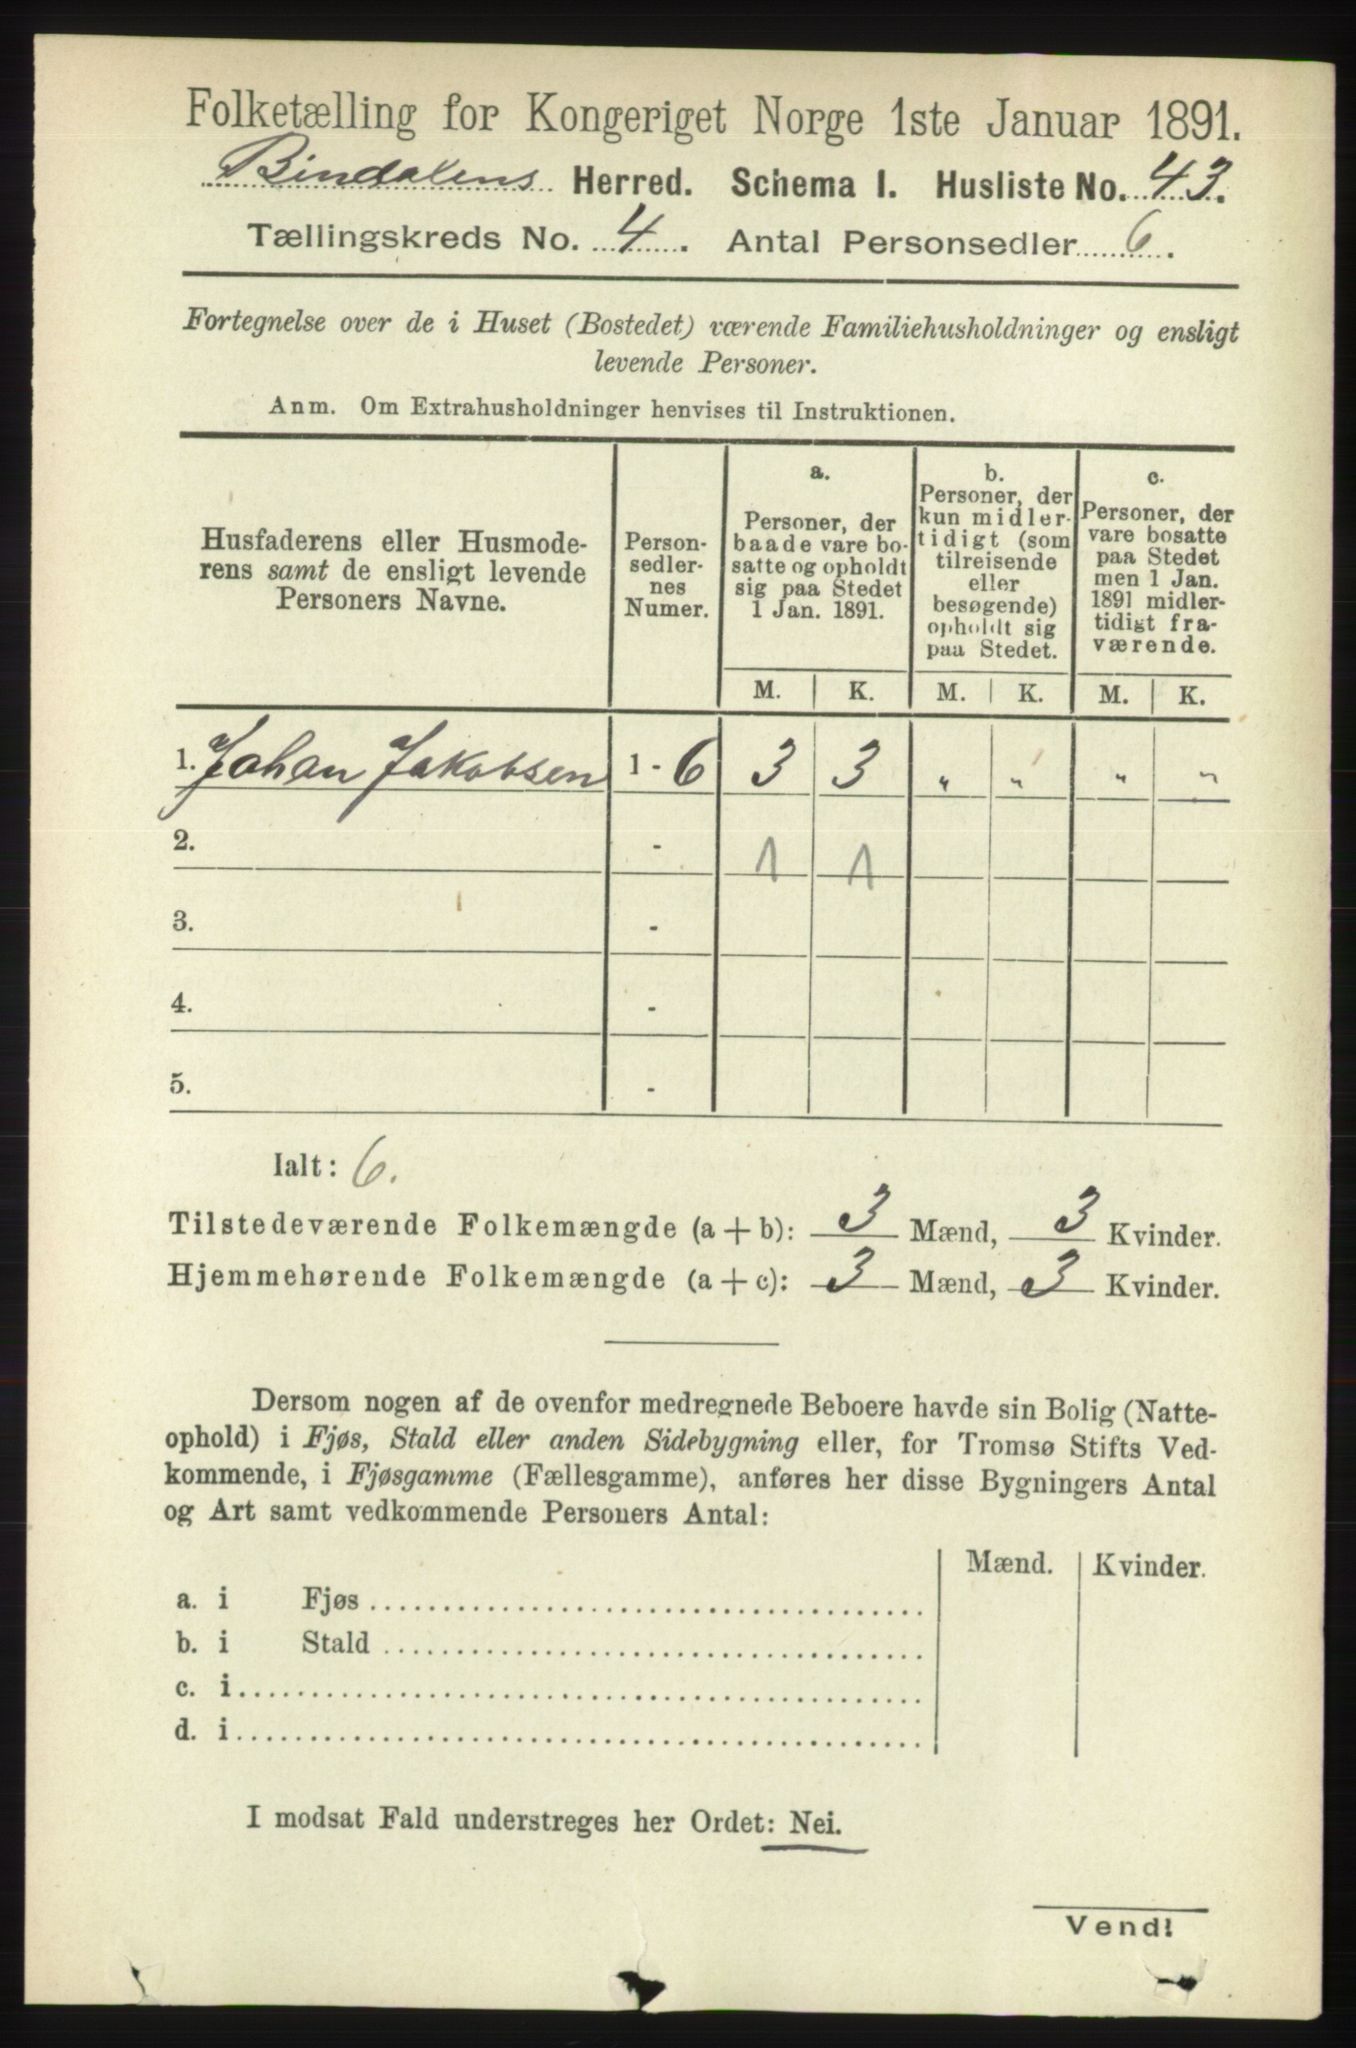 Folketælling for Kongeriget Norge 1ste Januar 1891.
Bindalens Herred. Schema I. Husliste No. 43.
Tællingskreds No. 4. Antal Personsedler 6.
Fortegnelse over de i Huset (Bostedet) værende Familiehusholdninger og ensligt
levende Personer.
Anm. Om Extrahusholdninger henvises til Instruktionen.
Husfaderens eller Husmode-
rens samt de ensligt levende
Personers Navne.
Person-
sedler-
nes
Numer.
a.
Personer, der
baade vare bo-
satte og opholdt
sig paa Stedet
1 Jan. 1891.
b.
Personer, der
kun midler-
tidigt (som
tilreisende
eller
besøgende)
opholdt sig
paa Stedet.
c.
Personer, der
vare bosatte
paa Stedet
men 1 Jan.
1891 midler-
tidigt fra-
værende.
M. K. M. K. M. K.
1. Johan Jakobsen 1 - 6 3 3 " " " "
2. - 1 1
3. -
4. -
5. -
Ialt: 6.
Tilstedeværende Folkemængde (a + b): 3 Mænd, 3 Kvinder.
Hjemmehørende Folkemængde (a + c): 3 Mænd, 3 Kvinder.
Dersom nogen af de ovenfor medregnede Beboere havde sin Bolig (Natte-
ophold) i Fjøs, Stald eller anden Sidebygning eller, for Tromsø Stifts Ved-
kommende, i Fjøsgamme (Fællesgamme), anføres her disse Bygningers Antal
og Art samt vedkommende Personers Antal:
Mænd. Kvinder.
a. i Fjøs
b. i Stald
c. i
d. i
I modsat Fald understreges her Ordet: Nei.
Vend!